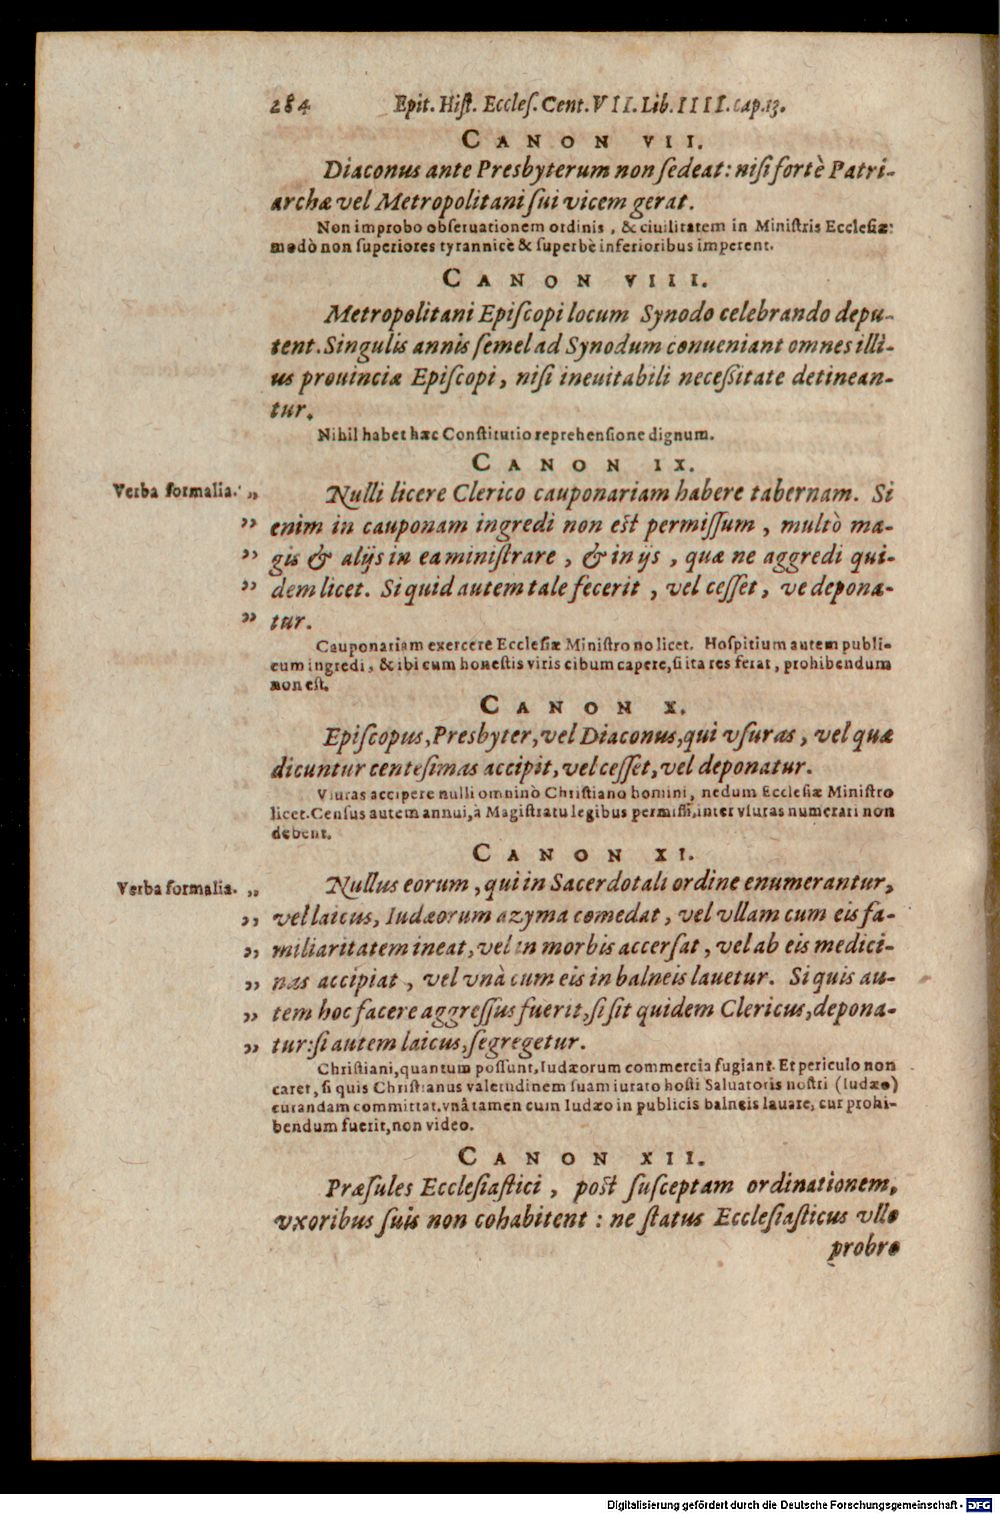 284 Epit. Hiſt. Eccleſ. Cent. VII. Lib. IIII. cap. 13.
CANON VII.
Diaconus ante Presbyterum non ſedeat: niſi fortè Patri-
archæ vel Metropolitani ſui vicem gerat.
Non improbo obſeruationem ordinis, & ciuilitatem in Miniſtris Eccleſiæ:
modò non ſuperiores tyrannicè & ſuperbè inferioribus imperent.
CANON VIII.
Metropolitani Epiſcopi locum Synodo celebrando depu-
tent. Singulis annis ſemel ad Synodum conueniant omnes illi-
us prouinciæ Epiſcopi, niſi ineuitabili neceßitate detinean-
tur.
Nihil habet hæc Conſtitutio reprehenſione dignum.
CANON IX.
Verba formalia. „ Nulli licere Clerico cauponariam habere tabernam. Si
„ enim in cauponam ingredi non eſt permiſſum, multò ma-
„ gis & alijs in ea miniſtrare, & in ijs, quæ ne aggredi qui-
„ dem licet. Si quid autem tale fecerit, vel ceſſet, ve depona-
„ tur.
Cauponariam exercere Eccleſiæ Miniſtro nō licet. Hoſpitium autem publi-
cum ingredi, & ibi cum honeſtis viris cibum capere, ſi ita res ferat, prohibendum
non eſt.
CANON X.
Epiſcopus, Presbyter, vel Diaconus, qui vſuras, vel quæ
dicuntur centeſimas accipit, vel ceſſet, vel deponatur.
Vſuras accipere nulli omninò Chriſtiano homini, nedum Eccleſiæ Miniſtro
licet. Cenſus autem annui, à Magiſtratu legibus permiſſi, inter vſuras numerari non
debent.
CANON XI.
Verba formalia. „ Nullus eorum, qui in Sacerdotali ordine enumerantur,
„ vel laicus, Iudæorum azyma comedat, vel vllam cum eis fa-
„ miliaritatem ineat, vel in morbis accerſat, vel ab eis medici-
„ nas accipiat, vel vnà cum eis in balneis lauetur. Si quis au-
„ tem hoc facere aggreſſus fuerit, ſi ſit quidem Clericus, depona-
„ tur: ſi autem laicus, ſegregetur.
Chriſtiani, quantum poſſunt, Iudæorum commercia fugiant. Et periculo non
caret, ſi quis Chriſtianus valetudinem ſuam iurato hoſti Saluatoris noſtri (Iudæo)
curandam committat. vnâ tamen cum Iudæo in publicis balneis lauare, cur prohi-
bendum fuerit, non video.
CANON XII.
Præſules Eccleſiaſtici, poſt ſuſceptam ordinationem,
vxoribus ſuis non cohabitent: ne ſtatus Eccleſiaſticus vllo
probro
Digitalisierung gefördert durch die Deutsche Forschungsgemeinschaft - DFG